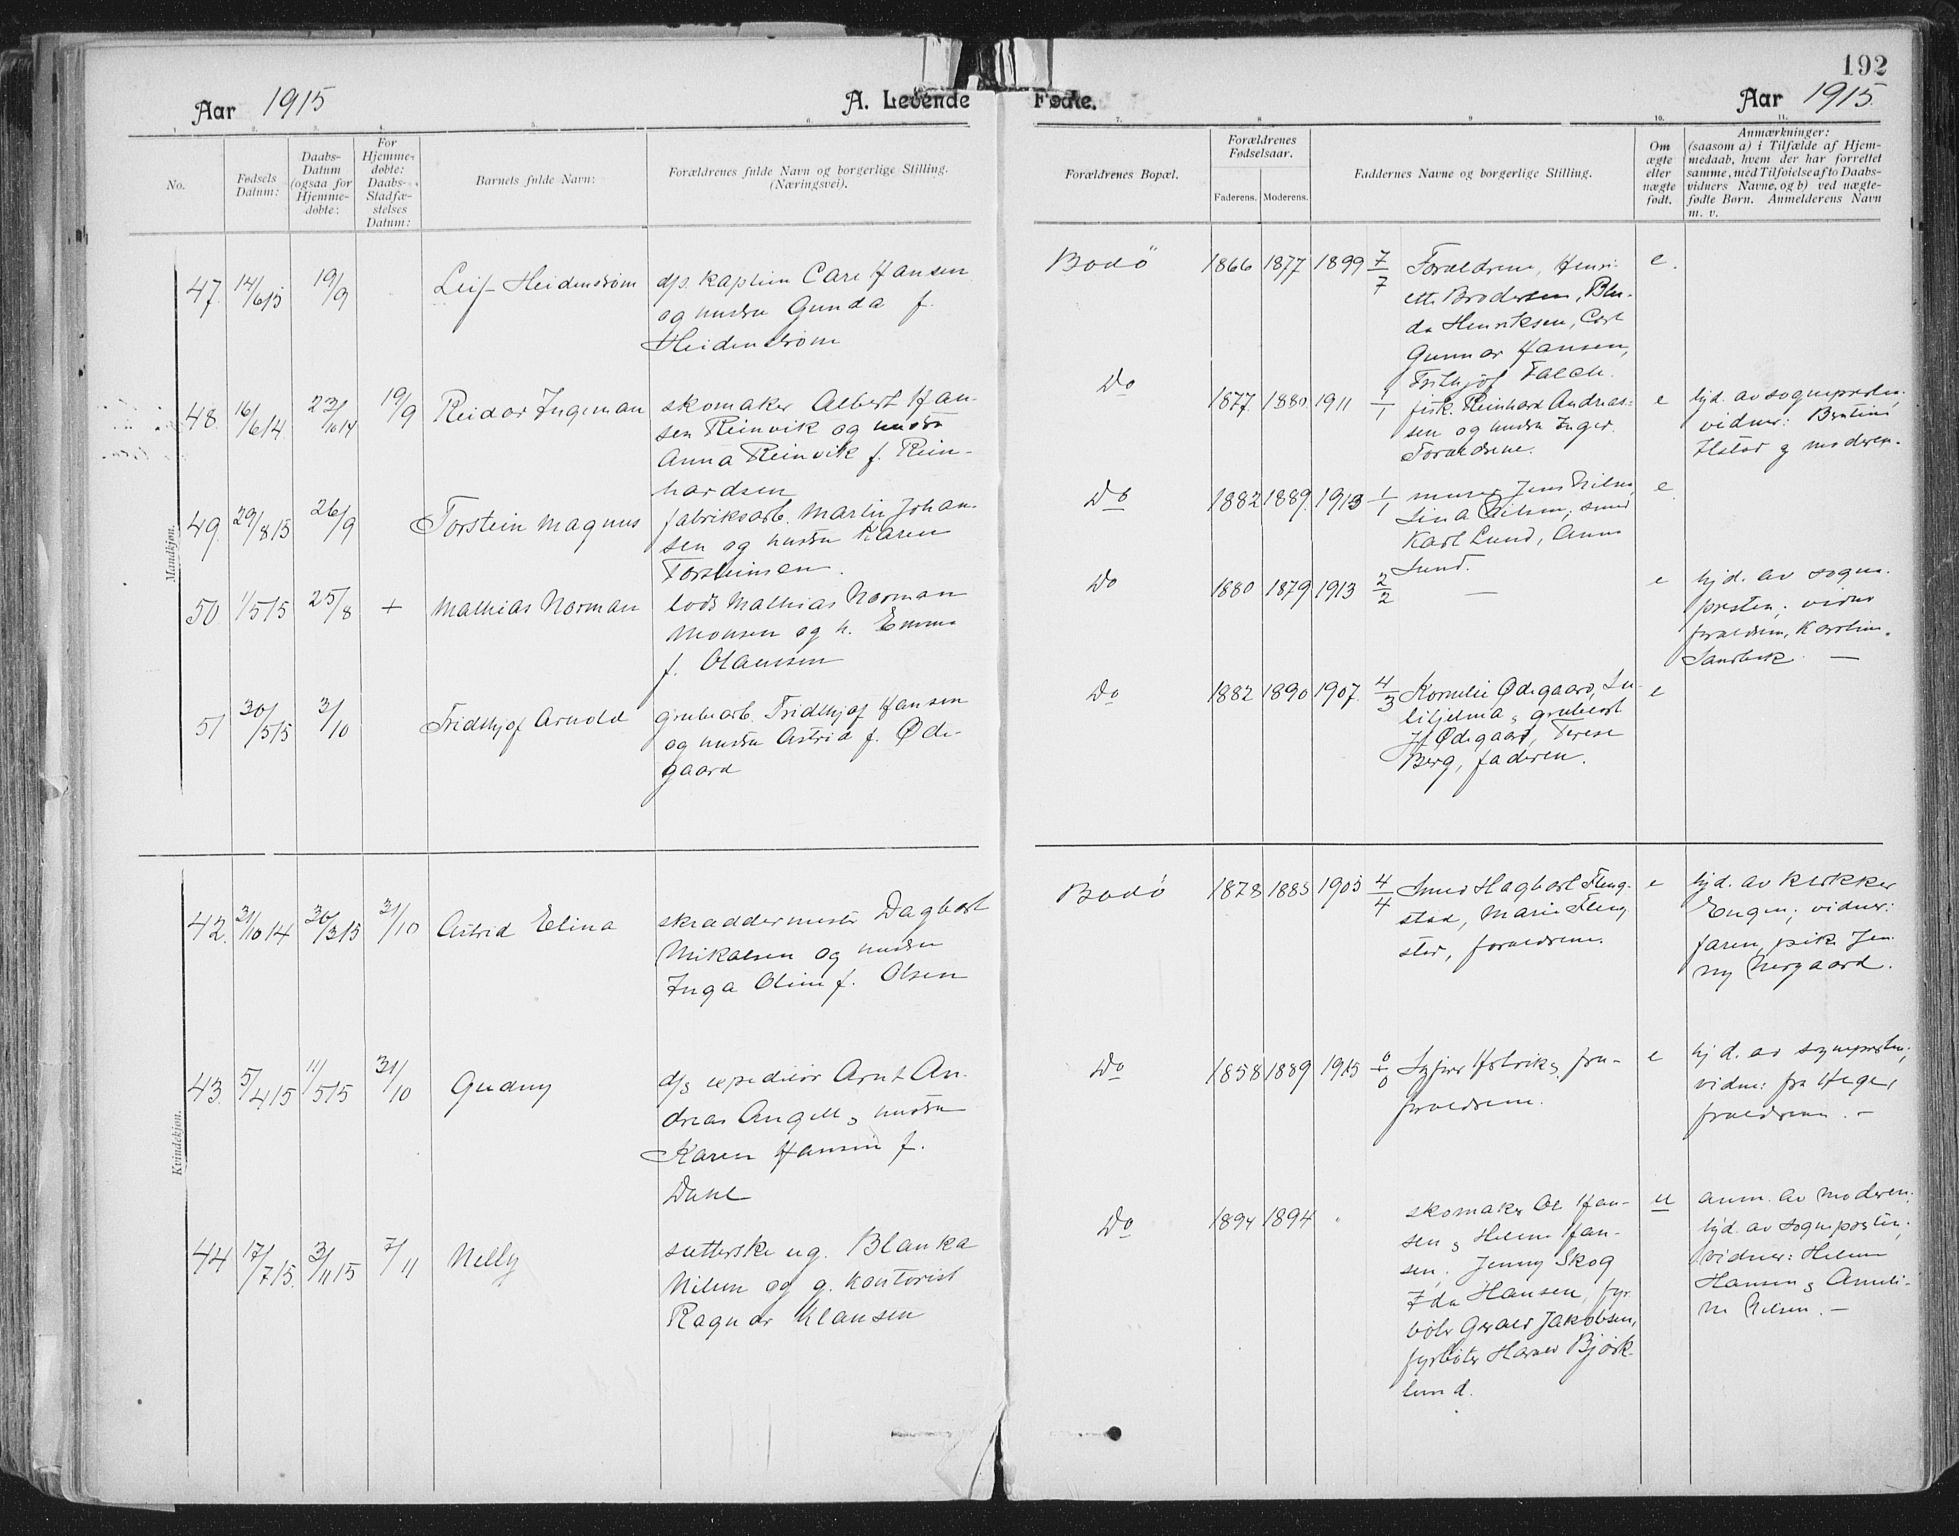 192
Aar 1915
A. Levende Fødte.
Aar 1915.
1. 2. 3. 4. 5. 6. 7. 8. 9. 10. 11.
No.
Fødsels Datum:
Daabs-Datum (ogsaa for Hjemme-døbte:
For Hjemme-døbte: Daabs-Stadfæ-stelses Datum:
Barnets fulde Navn:
Forældrenes fulde Navn og borgerlige Stilling.
(Næringsvei).
Forældrenes Bopæl.
Forældrenes Fødselsaar.
Faderens. Moderens.
Faddernes Navne og borgerlige Stilling.
Om ægte eller uægte født.
Anmærkninger:
(saasom a) i Tilfælde af Hjem-
medaab, hvem der har forrettet
samme, med Tilføielse af to Daabs-
vidners Navne, og b) ved uægte-
fødte Børn. Anmelderens Navn
m. v.
Mandkjøn.
47. 14/6 15 19/9 Leif Heidenstrøm
d/s kaptein Carl Hansen
og hustru Gunda f.
Heidenstrøm
Bodö 1866 1877 1899 7/7
Forældrene, Henri-
ette Brodersen,
da Henriksen, Carl
Gunnar Hansen,
Frithjof Falch.
e.
48. 16/6 14 23/10 14 19/9 Reidar Ingeman
skomaker Albert Han-
sen Reinvik og hustru
Anna Reinvik f. Rein-
hardsen
Do 1877. 1880 1911 1/1
fisk. Reinhard Andreas-
sen og hustru Inger.
Forældrene.
e
hjd. av sognepresten.
vidner:
og moderen.
49. 29/8 15 26/9 Torstein Magnus
fabriksarb. Martin Johan-
sen og hustru Karen
Torsteinsen.
Do 1882 1889. 1913 1/1
murer Jens Nilsen,
Lina Nilsen, smed
Karl Lund, Anna
Lund.
e
50 1/5 15 25/8 + Mathias Norman
lods Mathias Norman
Monsen og h. Emma
f. Olaussen
Do 1880 1879 1913 2/2
—
e
hjd. av sogne-
presten; vidner
forældrene, Karoline
Sandvik. —
51 30/5 15 3/10 Fridthjof Arnold
grubearb. Fridthjof Hansen
og hustru Astrid f. Øde-
gaard
Do 1882 1890 1907. 4/3
Kornelie Ødegaard,
grubearb
Ødegaard, Terese
Berg, faderen.
e
Kvindekjøn.
42. 31/10 14 30/3 15 31/10 Astrid Elina
skræddermester Dagbart
Mikalsen og hustru
Inga Oline f. Olsen
Bodö 1878 1885 1905 4/4
Smed Hagbart Fleng-
stad, Marie Fleng
stad, forældrene.
e
hjd. av klokker
Engen; vidner:
faren, pike Jen
ny Nergaard.
43. 5/4 15 11/5 15 31/10 Gudny
d/s expeditør Arnt An-
dreas Angell og hustru
Karen Hansine f.
Dahl
Do 1858 1889 1915 0/0
forældrene.
e
hjd. av sognepresten;
vidner: fru Heger,
forældrene. —
44 17/7 15. 3/11 15 7/11 Nelly
sætterske ug. Blanka
Nilsen og g. kontorist
Ragnar Klausen
Do 1894 1894 "
skomaker Ole Han-
sen og Helene Han-
sen. Jenny Skog
Ida Hansen, fyr
bøter Gerald Jakobsen,
fyrbøter Harald Bjørk-
lund.
u
anm. av moderen.
hjd. av sognepresten;
vidner: Helene
Hansen og Ameli-
ne Nilsen. —